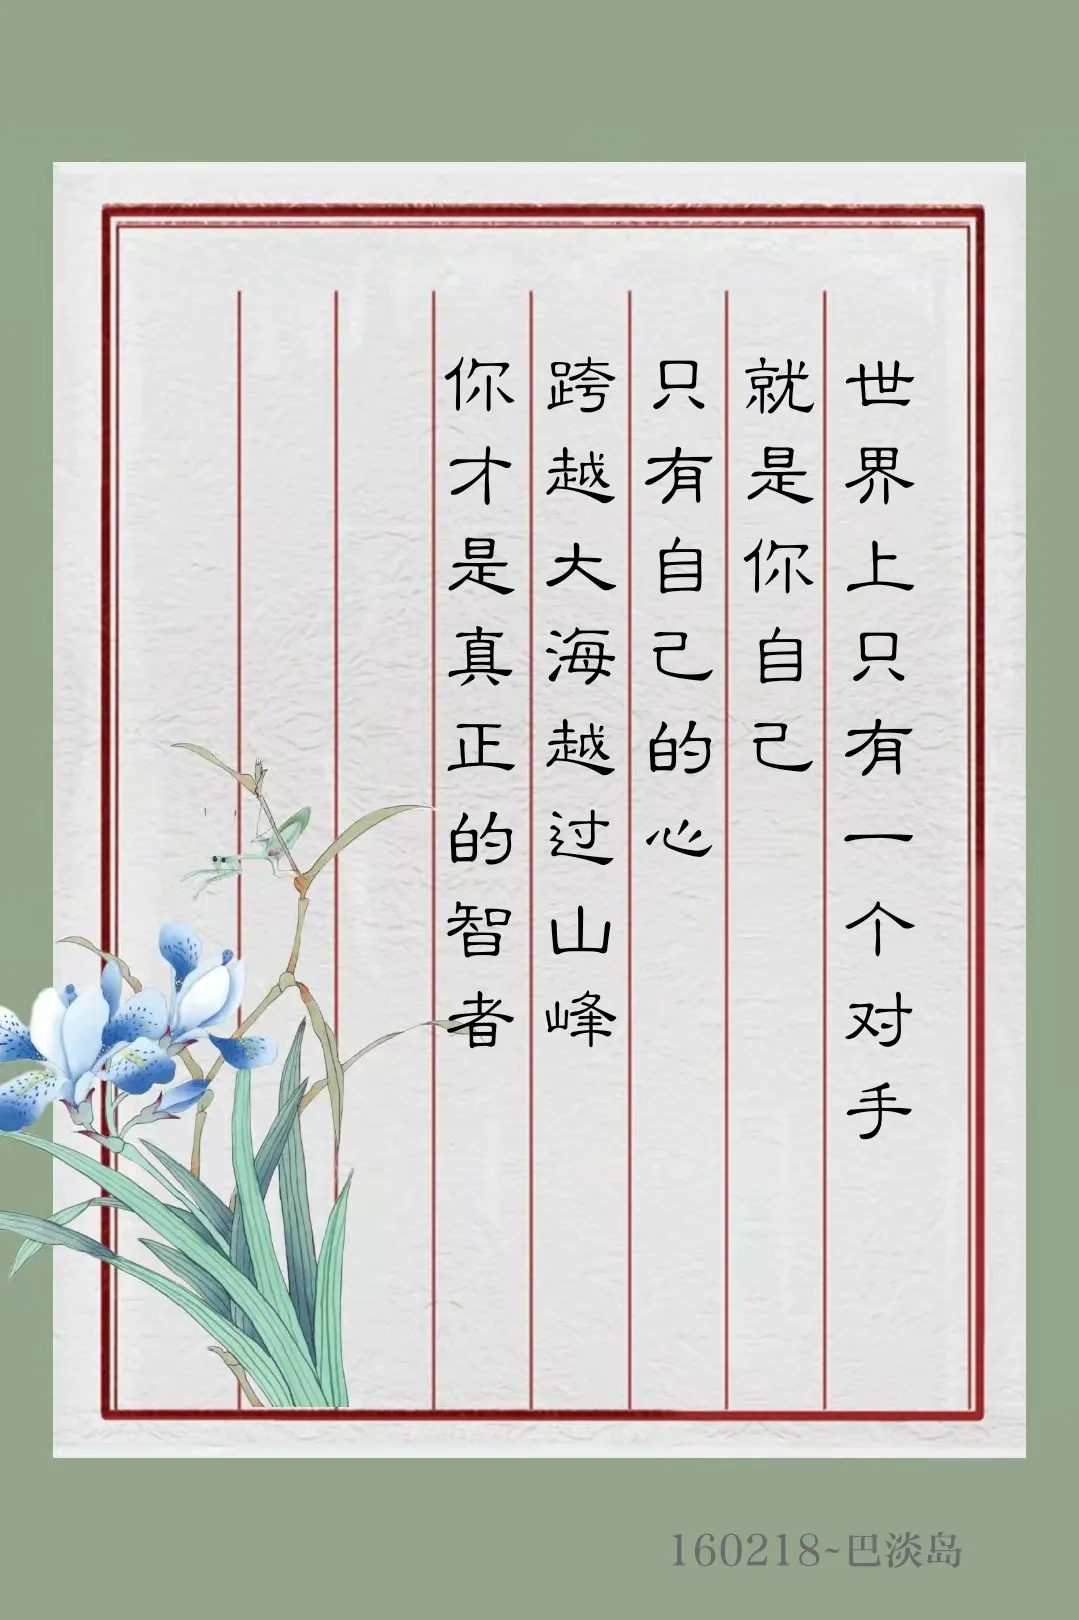 世界上只有一个对手
就是你自己
只有自己的心
跨越大海越过山峰
你才是真正的智者
160218~巴淡岛